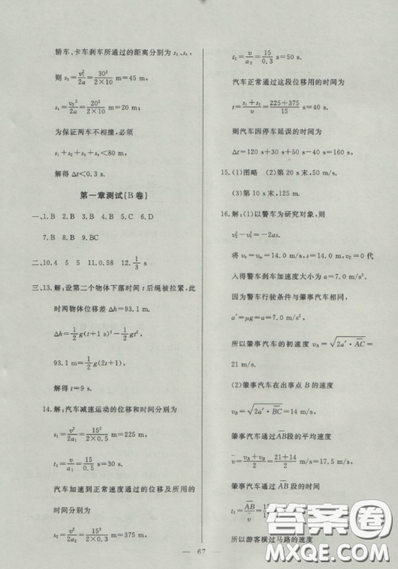 轿车、卡车刹车所通过的距离分别为s₁、s₂,
则s₁=v₁²/2a=30²/(2×10) m=45 m,
s₂=v₂²/2a=20²/(2×10) m=20 m;
为保证两车不相撞,必须
s₁+s₂+s₃+s₄<80 m,
解得Δt<0.3 s.
第一章测试(B卷)
一、1.B 2.D 3.B 4.B 5.C 6.D
7.B 8.D 9.BC
二、10.4 5 5 11.0.58 12.1/3 s
三、13.解:设第二个物体下落时间t后绳被拉紧,此
时两物体位移差Δh=93.1 m,
Δh=½g(t+1 s)²-½gt²,
93.1 m=½g(2t+1),
解得t=9 s.
14.解:汽车减速运动的位移和时间分别为
s₁=v²/2a₁=15²/(2×0.5) m=225 m,
t₁=v/a₁=15/0.5 s=30 s.
汽车加速到正常速度通过的位移及所用的
时间分别为
s₂=v²/2a₂=15²/(2×0.3) m=375 m.
t₂=v/a₂=15/0.3 s=50 s.
汽车正常通过这段位移用的时间为
t=(s₁+s₂)/v=(225+375)/15 s=40 s.
则汽车因停车延误的时间为
Δt=120 s+30 s+50 s-40 s=160 s
15.(1)图略 (2)第20 s末,50 m/s.
(3)第10 s末,125 m.
16.解:以警车为研究对象,则
将v₀=14.0 m/s, v=0代
入得警车刹车加速度大小为a=7.0 m/s²,
因为警车行驶条件与肇事汽车相同,
a'=μg=a=7.0 m/s².
所以肇事汽车的初速度 vA=√(2a'·AC)=
21 m/s.
(2)肇事汽车在出事点B的速度
vB=√(2a'·BC)=14 m/s,
肇事汽车通过AB段的平均速度
v=(vA+vB)/2=(21+14)/2 m/s=17.5 m/s.
肇事汽车通过AB段的时间
t₂=AB/v
所以游客横过马路的速度
67
答案卷
MXQE.COM